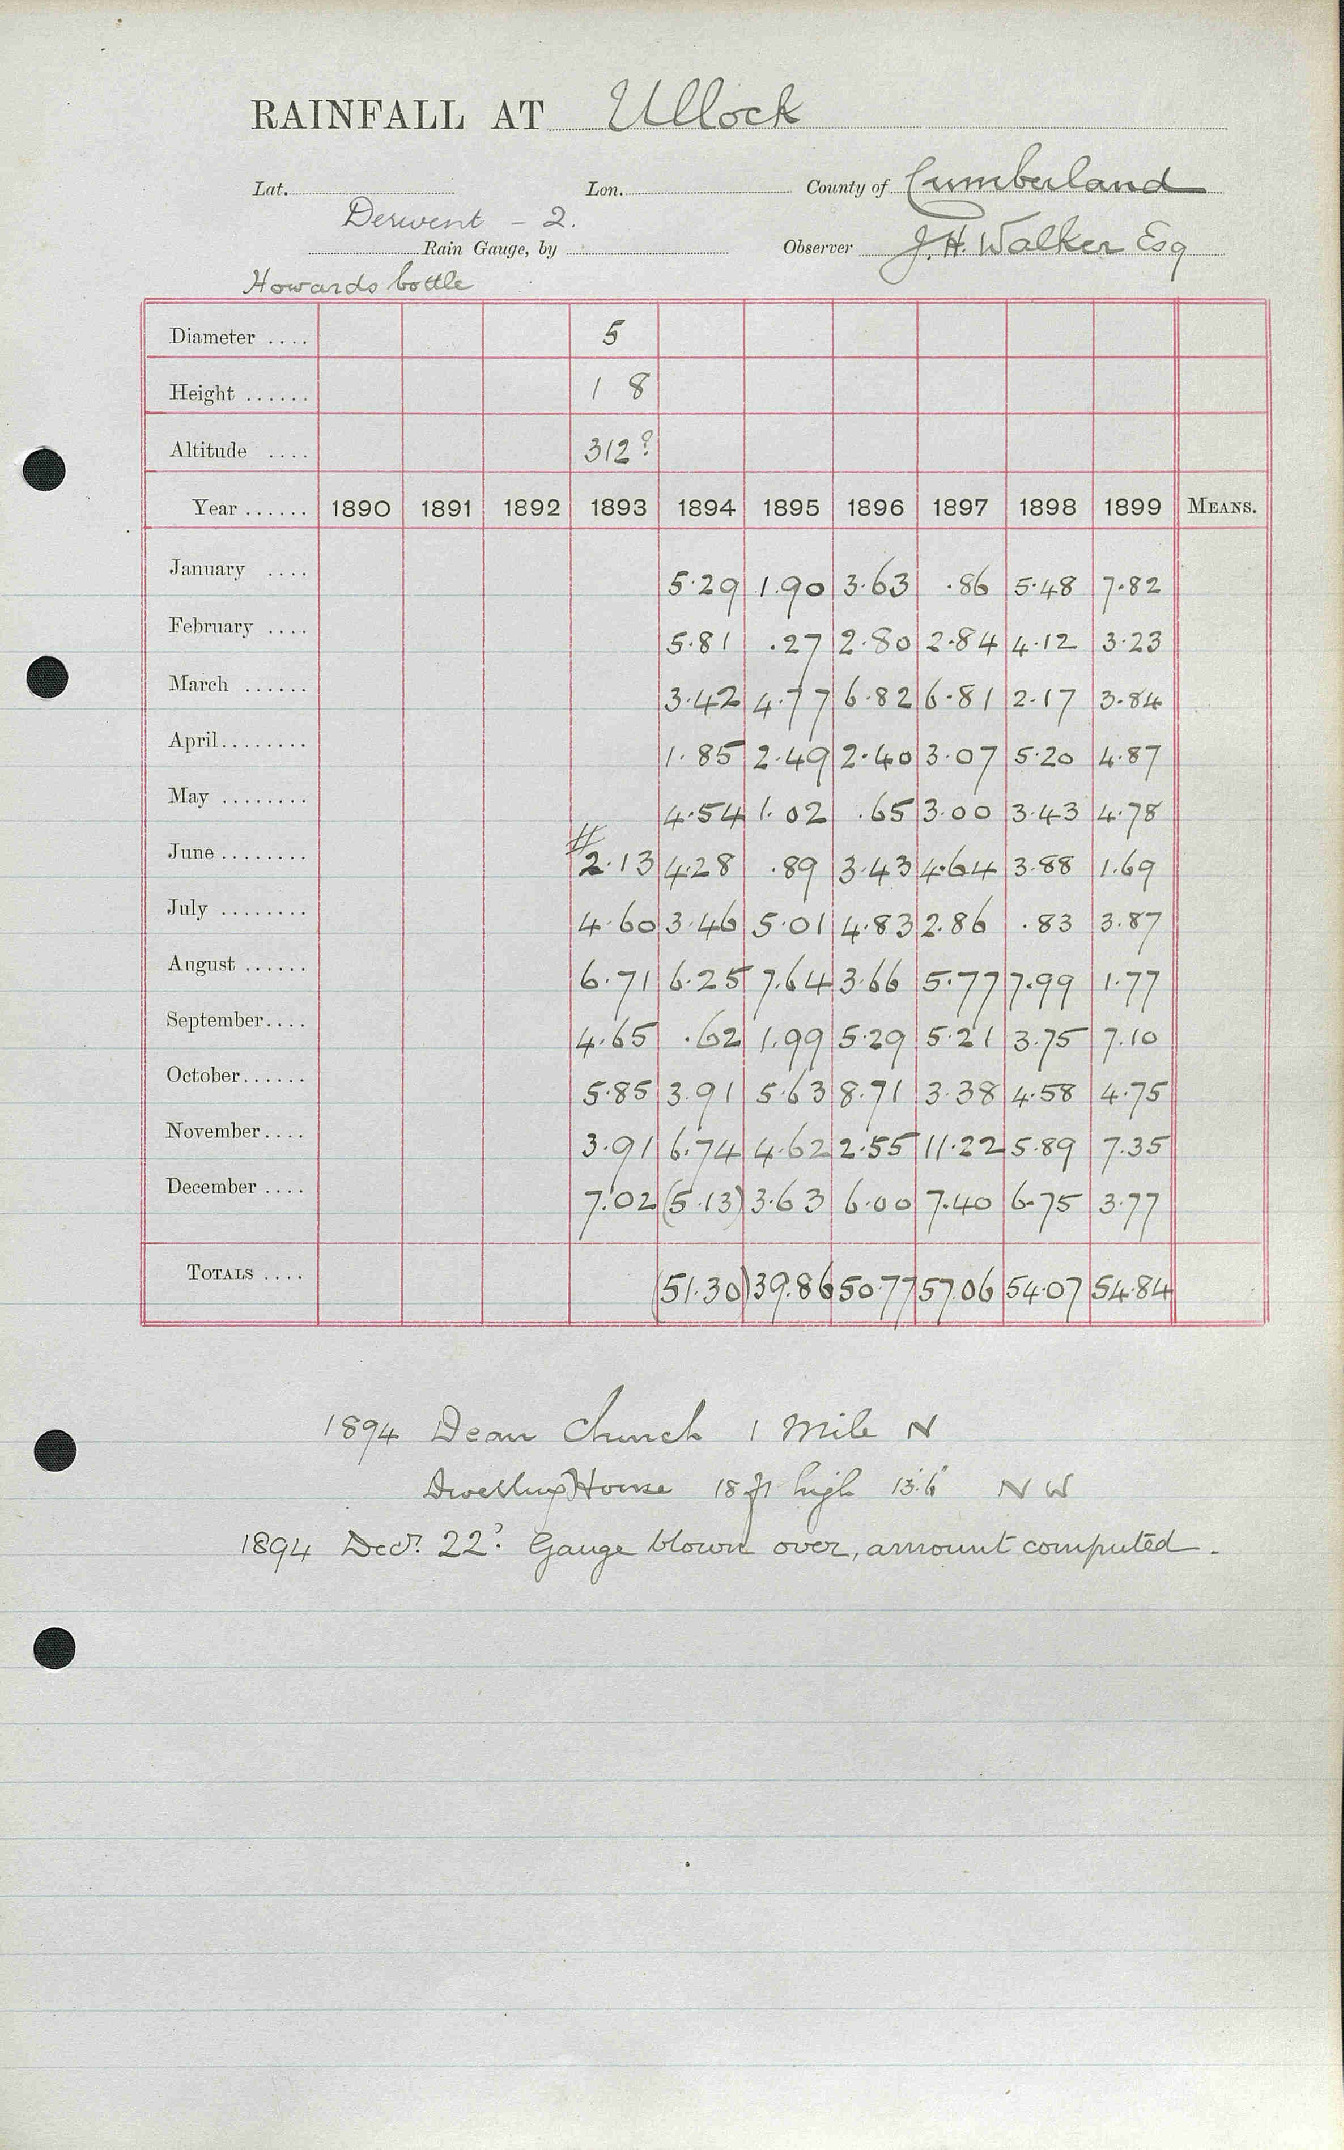 RAINFALL AT Ullock
Lat. Lon. County of Cumberland
Derwent - 2.
Rain Gauge, by Observer J. H. Walker Esq
Howards bottle
Diameter .... 5
Height ...... 1 8
Altitude .... 312?
Year ...... 1890 1891 1892 1893 1894 1895 1896 1897 1898 1899 MEANS.
January .... 5.29 1.90 3.63 .86 5.48 7.82
February .... 5.81 .27 2.80 2.84 4.12 3.23
March ...... 3.42 4.77 6.82 6.81 2.17 3.84
April........ 1.85 2.49 2.40 3.07 5.20 4.87
May ........ 4.54 1.02 .65 3.00 3.43 4.78
June ........ # 2.13 4.28 .89 3.43 4.64 3.88 1.69
July ........ 4.60 3.46 5.01 4.83 2.86 .83 3.87
August ...... 6.71 6.25 7.64 3.66 5.77 7.99 1.77
September.... 4.65 .62 1.99 5.29 5.21 3.75 7.10
October...... 5.85 3.91 5.63 8.71 3.38 4.58 4.75
November.... 3.91 6.74 4.62 2.55 11.22 5.89 7.35
December .... 7.02 (5.13) 3.63 6.00 7.40 6.75 3.77
TOTALS .... (51.30) 39.86 50.77 57.06 54.07 54.84
1894 Dean Church 1 Mile N
Dwelling House 18 ft high 13'.6" N W
1894 Decr. 22? Gauge blown over, amount computed.